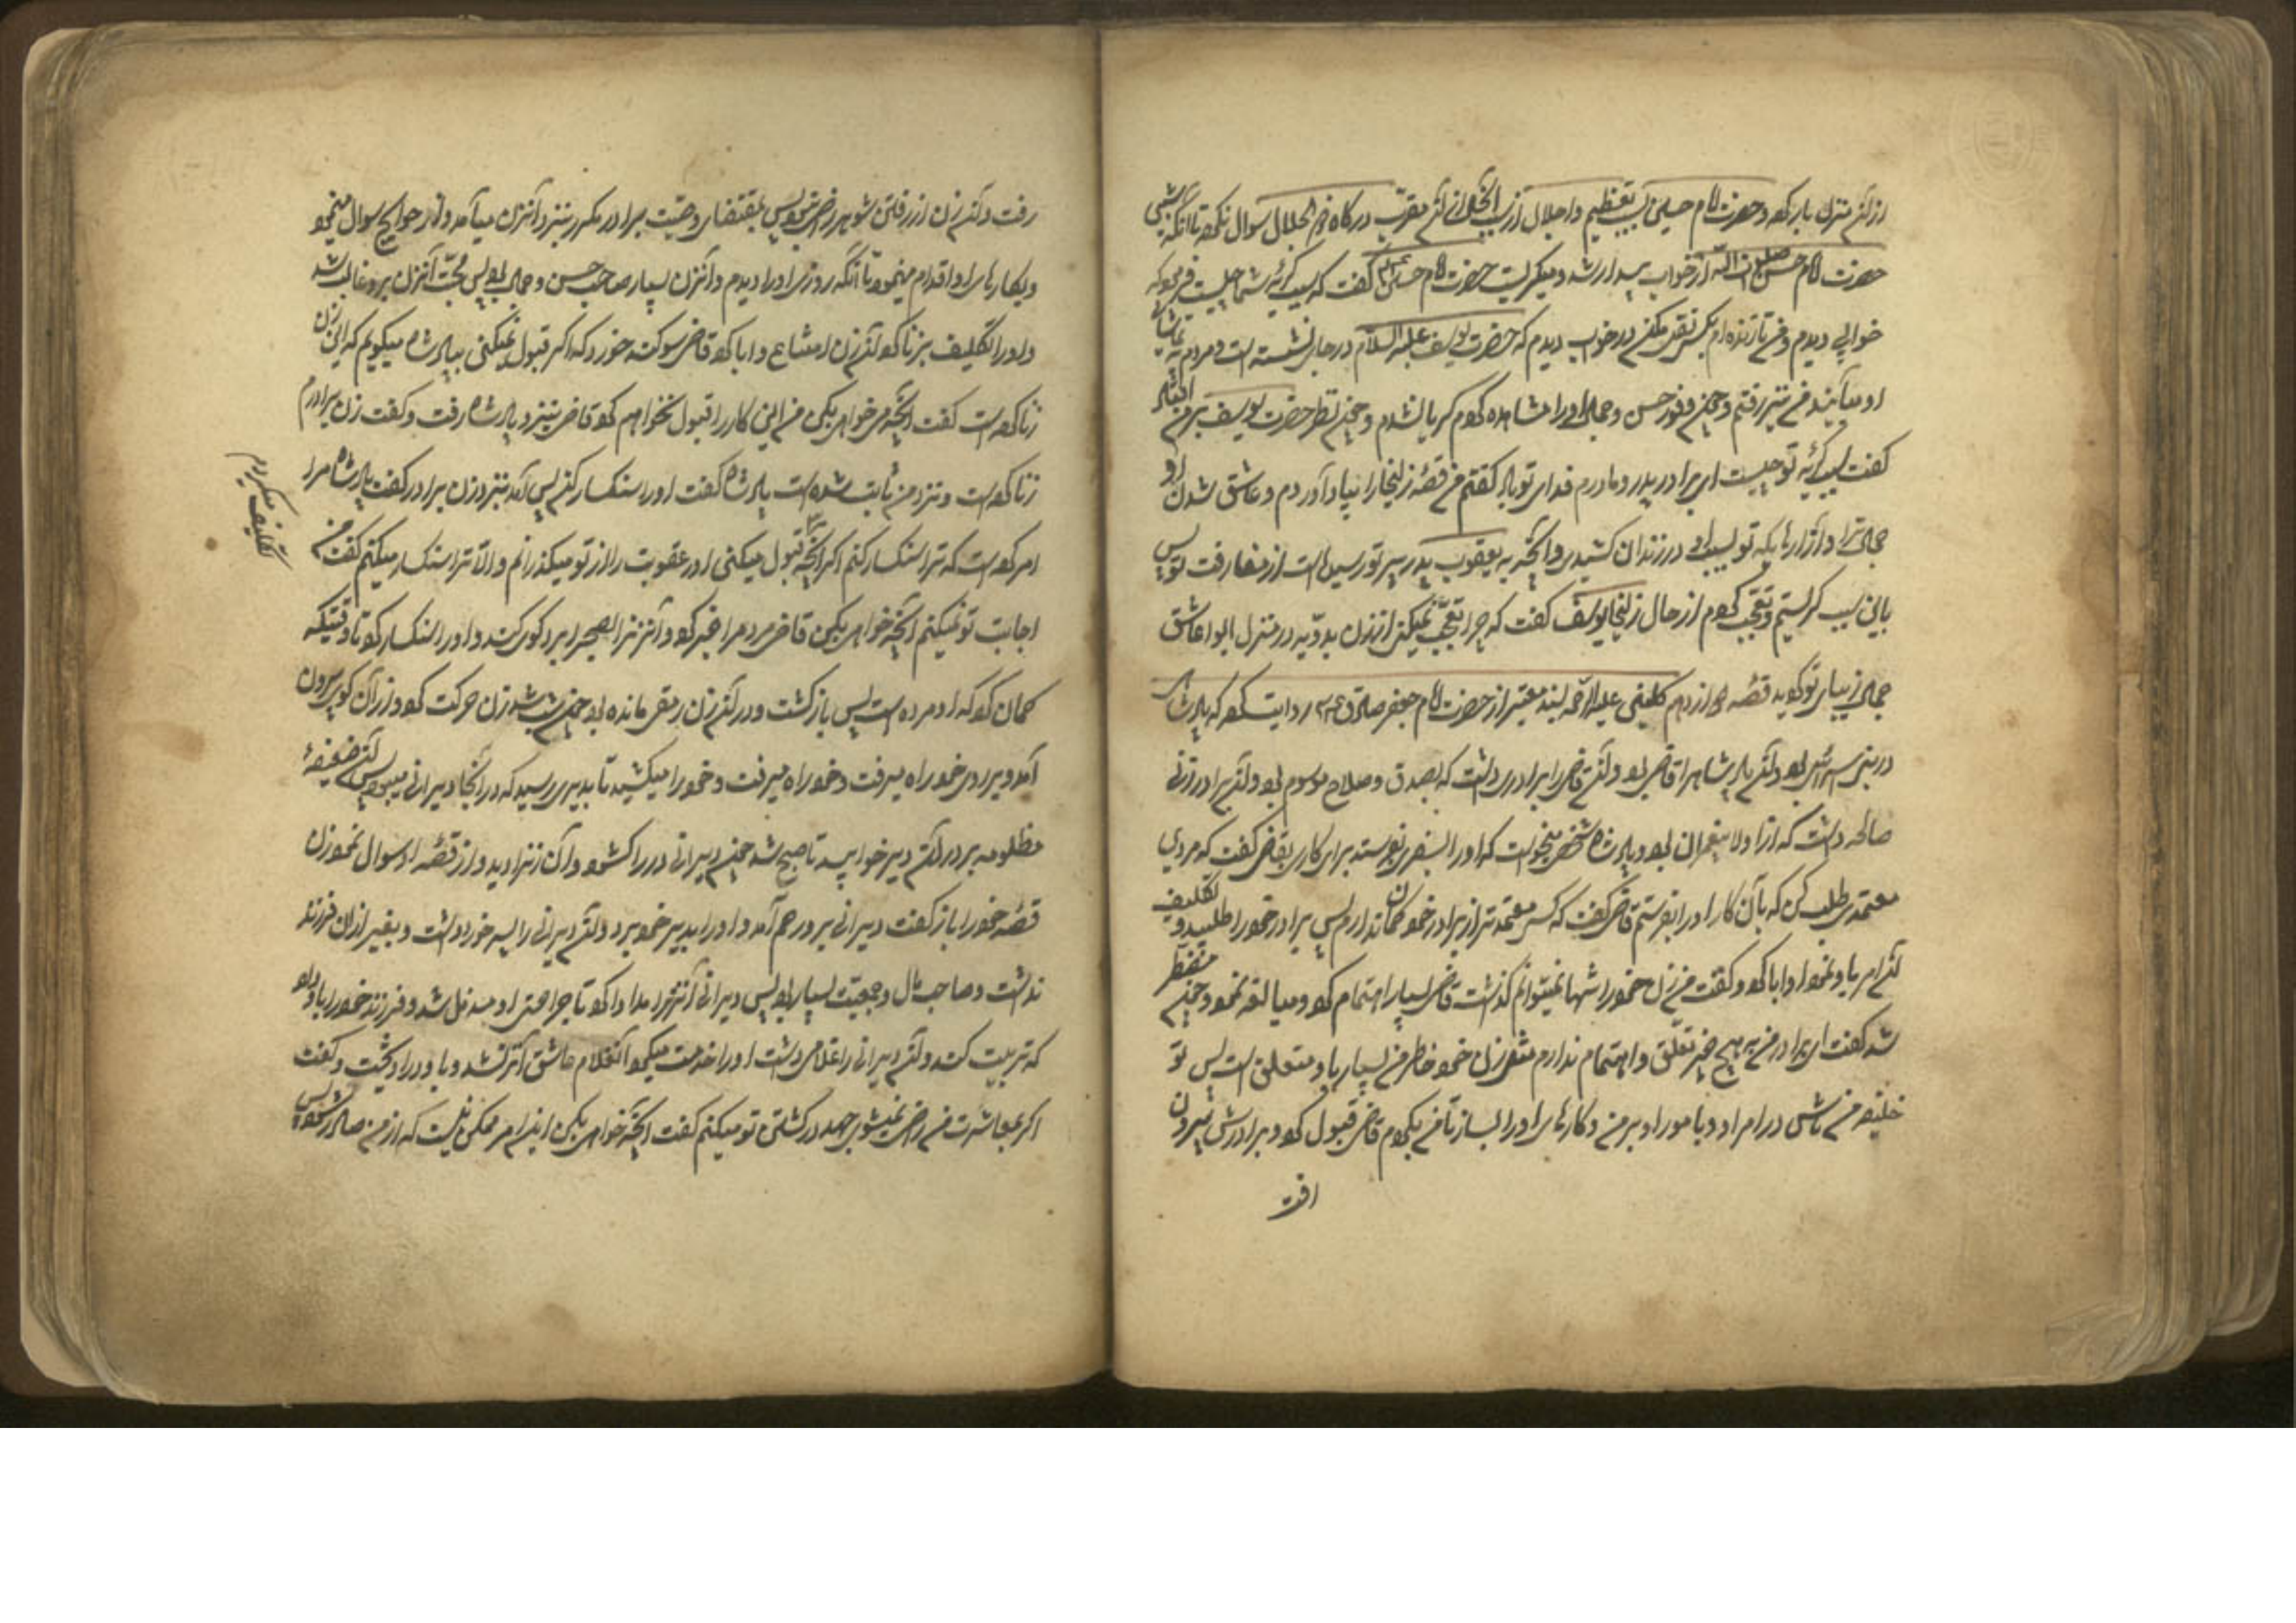 از آن منزل بار کرد و حضرت امام حسین بسبب تعظیم و اجلال از سبب آن مقرب درگاه ذو الجلال سوال نکرد تا آنکه شبی
حضرت امام حسن صلوات الله از خواب بیدار شد و میگریست حضرت امام حسین گفت که سبب گریه شما چیست فرمود که
خوابی دیدم و من تا زنده‌ام بکس نقل مکن در خواب دیدم که حضرت یوسف علیه السلام در جای نشسته است و مردم به تماشای
او میآیند من نیز رفتم و چون وفور حسن و جمال او را مشاهده کردم گریان شدم و چون نظر حضرت یوسف بر من افتاد
گفت سبب گریه تو چیست ای برادر پدر و مادرم فدای تو باد گفتم من قصه زلیخا را بیاد آوردم و عاشق شدن او
جمال ترا و آزارهائیکه تو بسبب او در زندان کشیدی و آنچه به یعقوب پدر پیر تو رسیده است از مفارقت تو پس
باین سبب گریستم و تعجب کردم از حال زلیخا یوسف گفت که چرا تعجب نمیکنی از زن بدویه در منزل ابوا عاشق
جمال زیبای تو گوید قصه دوازدهم کلینی علیه الرحمه بسند معتبر از حضرت امام جعفر صادق ع روایت کرده که پادشاهی
در بنی اسرائیل بود و آن پادشاه را قاضی بود و آن قاضی را برادری داشت که بصدق و صلاح موسوم بود و آن برادر زنی
صالحه داشت که از اولاد پیغمبران بود و پادشاه شخصی میخواست که او را بسفری بفرستد برای کاری بقاضی گفت که مردی
معتمدی طلب کن که بآن کار او را بفرستم قاضی گفت که کسی معتمدتر از برادر خود گمان ندارم پس برادر خود را طلبید و تکلیف
آن امر باو نمود او ابا کرد و گفت من زن خود را تنها نمیتوانم گذاشت قاضی بسیار اهتمام کرد و مبالغه نمود و چون مضطر
شد گفت ای برادر من به هیچ چیز تعلق و اهتمام ندارم مثل زن خود و خاطر من بسیار باو متعلق است پس تو
خلیفه من باش در امر او و بامور او برس و کارهای او را بساز تا من بیایم قاضی قبول کرد و برادرش بیرون
رفت
رفت و آن زن از رفتن شوهر راضی نبود پس بمقتضای وصیت برادر مکرر بنزد آنزن میآمد و از حوایج سوال مینمود
و بکارهای او اقدام مینمود تا آنکه روزی او را دیدم و آنزن بسیار صاحب حسن و جمال بود پس محبت آنزن برو غالب شد
و او را تکلیف بزنا کرد آن زن امتناع و ابا کرد قاضی سوگند خورد که اگر قبول نمیکنی بپادشاه میگویم که این زن
زنا کرده است گفت آنچه میخواهی بکن من این کار را قبول نخواهم کرد قاضی بنزد پادشاه رفت و گفت زن برادرم
زنا کرده است و نزد من ثابت شده است پادشاه گفت او را سنگسار کن پس آمد بنزد زن برادر گفت پادشاه مرا
امر کرده است که ترا سنگسار کنم اگر آنچه قبول میکنی از عقوبت را از تو میگذرانم و الا ترا سنگسار میکنم گفت من
تکلیف میکردم
اجابت تو نمیکنم آنچه خواهی بکن قاضی مردم را خبر کرد و آنزن را بصحرا برد و گوی کند و او را سنگسار کرد تا وقتیکه
گمان کرد که او مرده است پس بازگشت و در آن زن رمقی مانده بود چون شب شد زن حرکت کرد و از آن گو بیرون
آمد و بر روی خود راه میرفت و خود را میکشید تا بدیری رسید که در آنجا دیرانی میبود پس آن ضعیفه
مظلومه بر در آن دیر خوابید تا صبح شد چون دیرانی در را گشود و آن زن را دید و از قصه او سوال نمود زن
قصه خود را باز گفت دیرانی برو رحم آمد و او را بدیر خود برد و آن دیرانی را پسر خرد داشت و بغیر از آن فرزند
نداشت و صاحب مال و جمعیت بسیار بود پس دیرانی آنزن را مداوا کرد تا جراحتهای او مندمل شد و فرزند خود را باو داد
که تربیت کند و آن دیرانی را غلامی داشت او را خدمت میکرد آنغلام عاشق آنزن شد و باو در آویخت و گفت
اگر بمعاشرت من راضی نمیشوی جهد در کشتن تو میکنم گفت آنچه خواهی بکن این امر ممکن نیست که از من صادر شود پس